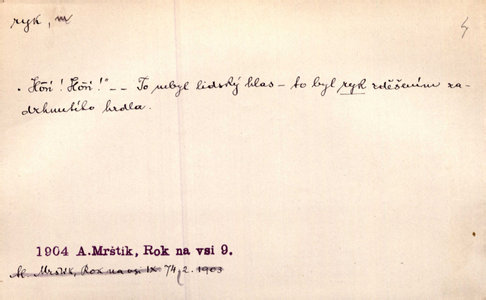 ryk, m
„Hoří! Hoří!" -- To nebyl lidský hlas – to byl ryk zděšením za-
drhnutého hrdla.
1904 A.Mrštík, Rok na vsi 9.
Al. Mrštík, Rok na vsi IX 74, 2. 1903